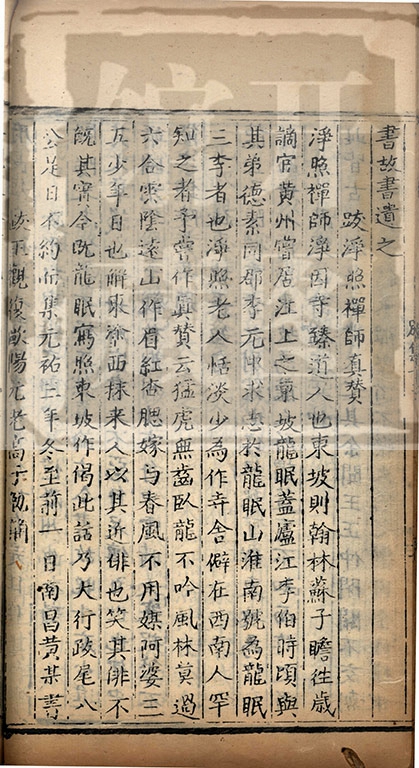 書故書遺之
跋淨照禪師真贊
淨照禪師淨因寺臻道人也東坡則翰林蘇子瞻往歲
謫官黃州嘗居江上之東坡龍眠蓋廬江李伯時頃與
其弟德素同郡李元中求志於龍眠山淮南號為龍眠
三李者也淨照老人恬淡少為作寺舍僻在西南人罕
知之者予嘗作真贊云猛虎無齒臥龍不吟風林莫過
六合雲陰遠山作眉紅杏腮嫁与春風不用媒阿婆三
五少年日也解東塗西抹來人以其近俳也笑其俳不
既其實今既龍眠寫照東坡作偈此話乃大行跋尾八
公是日不約而集元祐三年冬至前一日南昌黃某書
跋王觀復歐陽元老高子勉簡